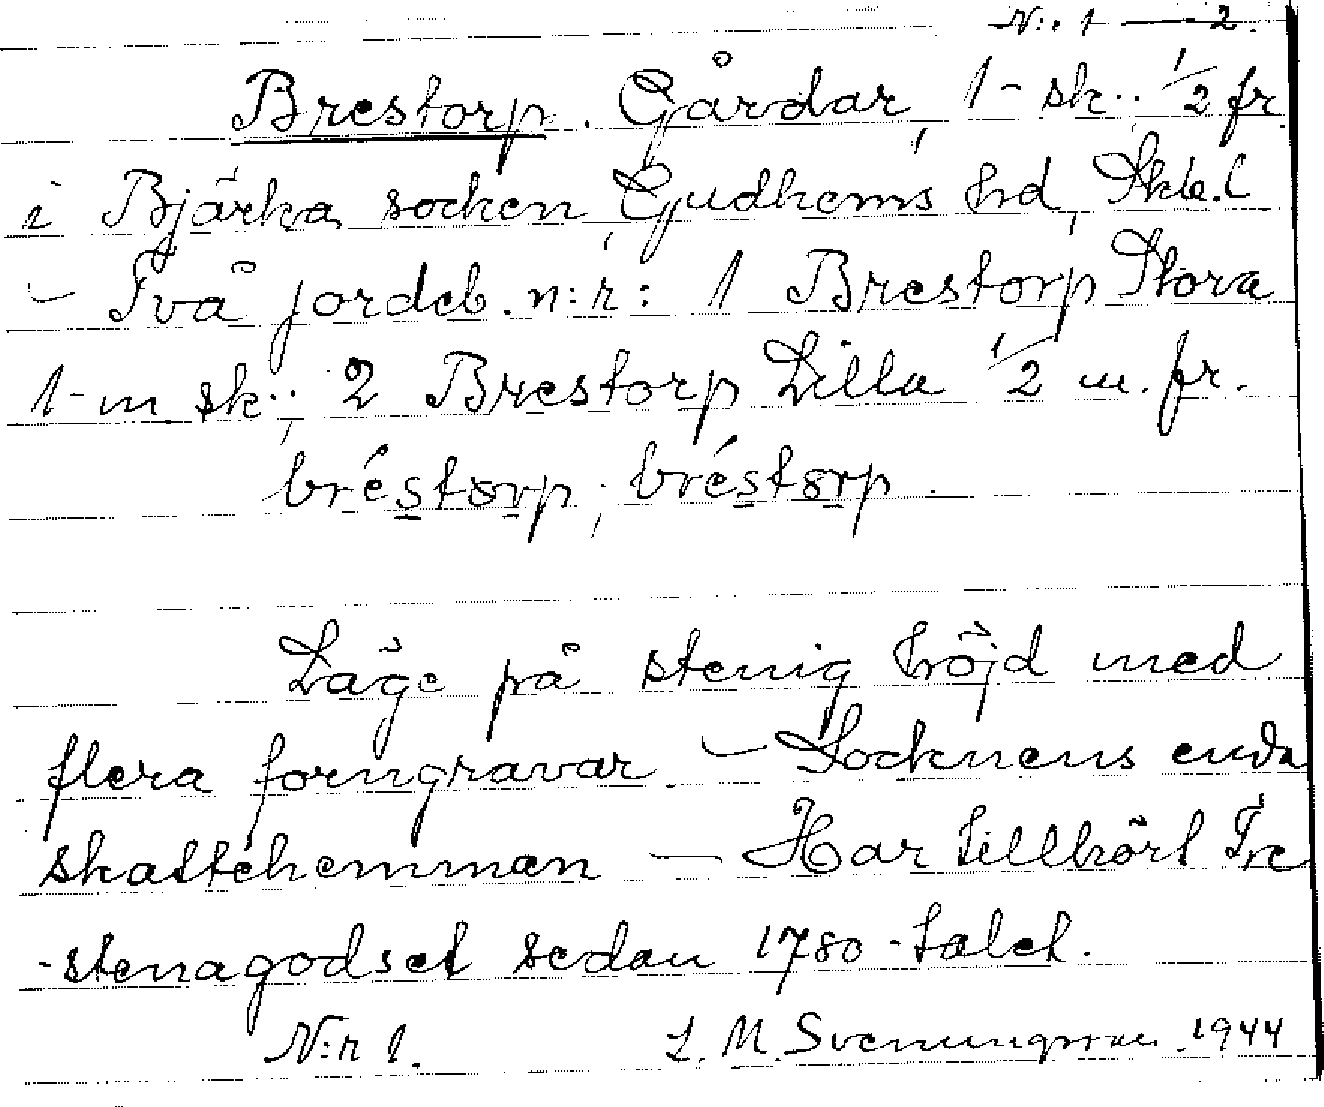 N:. 1 — 2.
Brestorp. Gårdar, 1 - sk.. 1/2 fr.
i Bjärka socken, Gudhems hd, Skbl.
- Två jordeb. n:r: 1 Brestorp Stora
1 - m sk.; 2 Brestorp Lilla 1/2 m. fr.
bréstorp; bréstorp.
Läge på stenig höjd med
flera forngravar. - Socknens enda
skattehemman — Har tillhört Tre
-stenagodset sedan 1780-talet.
N:r 1. L. M. Svenungsson. 1944